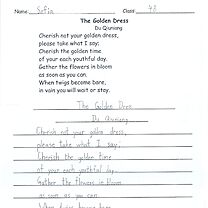 Name: Sofia Class 4B
The Golden Dress
Du Qiuniang
Cherish not your golden dress,
please take what I say;
Cherish the golden time
of your each youthful day.
Gather the flowers in bloom
as soon as you can.
When twigs become bare,
in vain you will wait or stay.
The Golden Dres
Du Qiuniang
Cherish not your golden dress,
please take what I say;
Cherish the golden time
of your each youthful day.
Gather the flowers in bloom
as soon as you can.
When twigs become bare